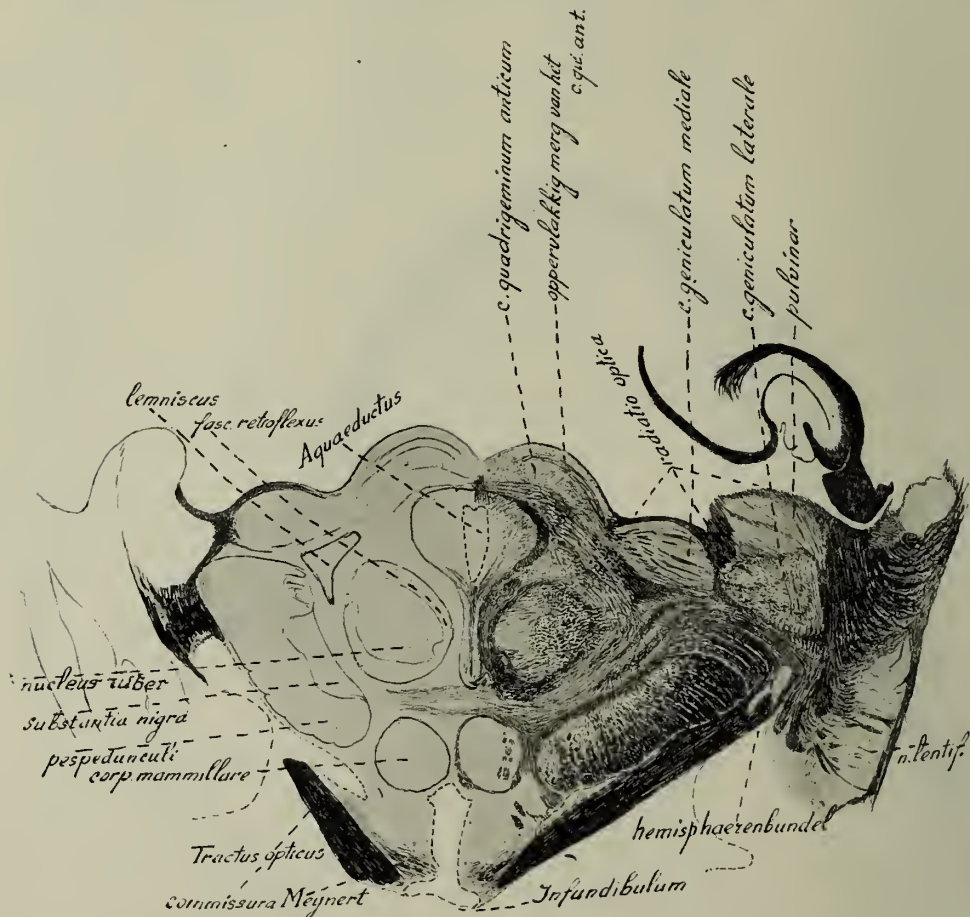 c. quadrigeminum anticum
oppervlakkig merg van het
c. qu. ant.
c. geniculatum mediale
c. geniculatum laterale
pulvinar
radiatio optica
lemniscus
fasc. retroflexus
Aquaeductus
nucleus ruber
substantia nigra
pespedunculi
corp. mammillare
n. lentif.
hemisphaerenbundel
Tractus opticus
commissura Meynert
Infundibulum